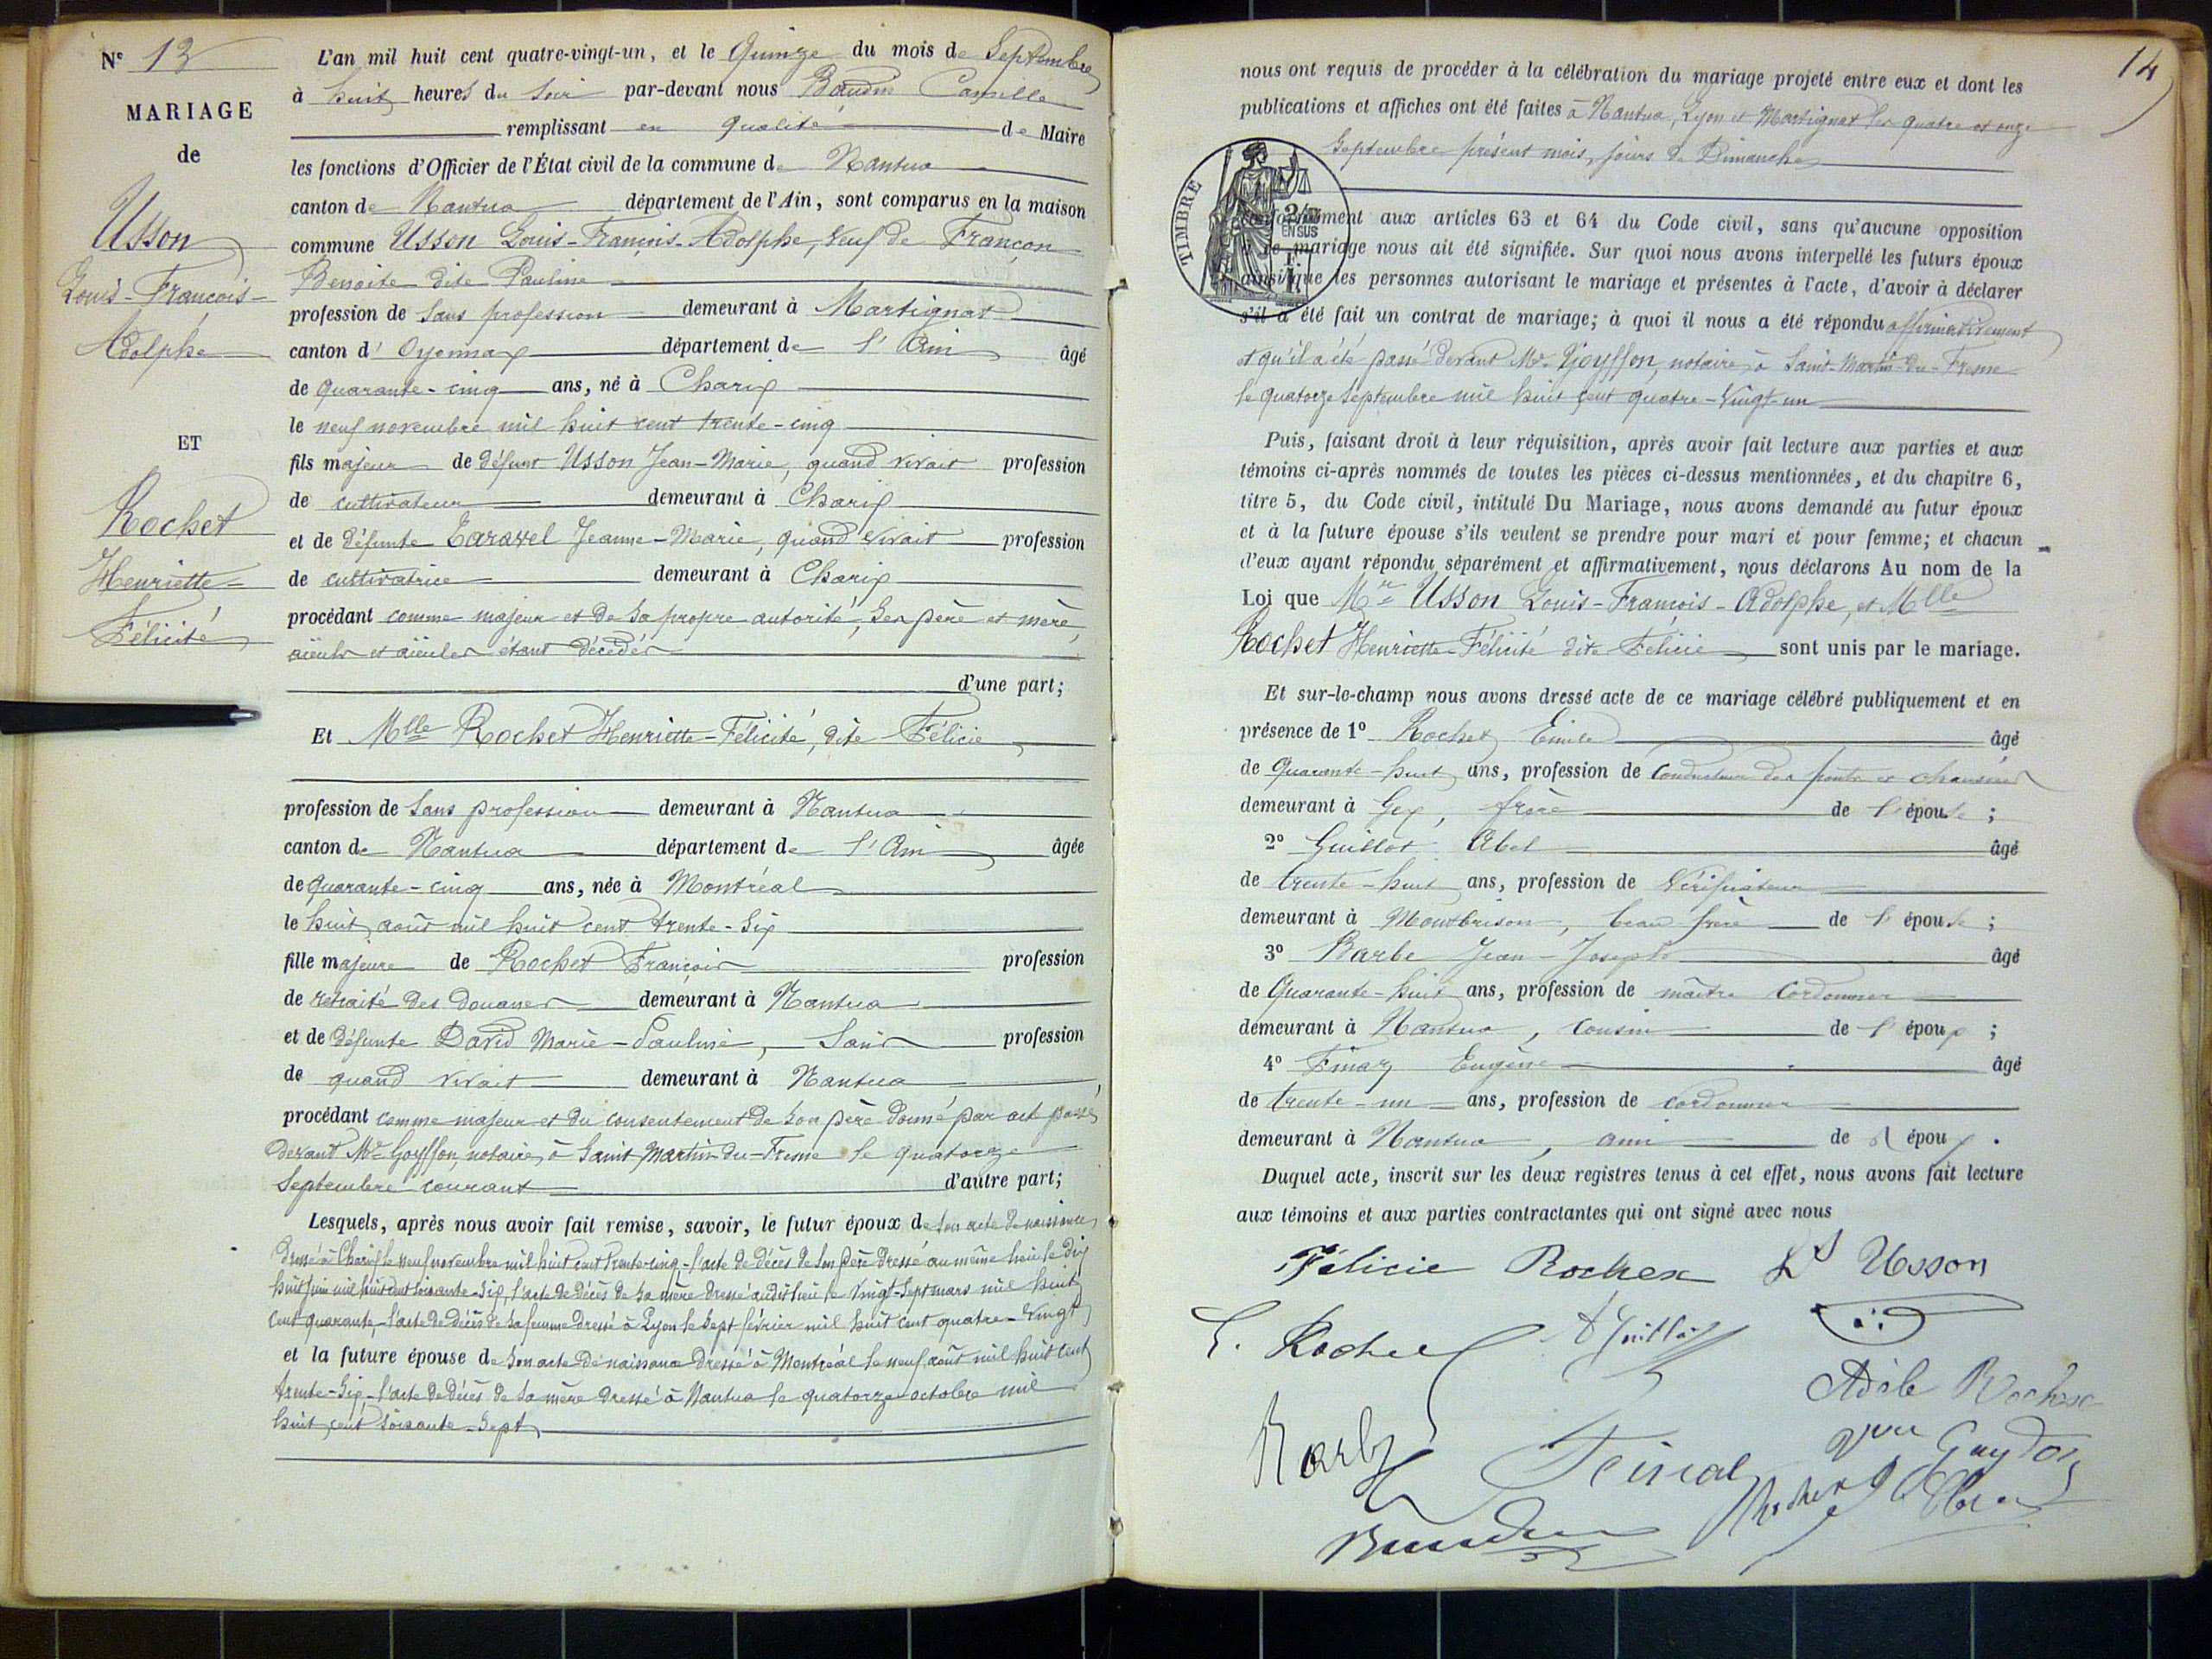 N° 13
MARIAGE
de
Usson
Louis-François-
Adolphe
ET
Rochet
Henriette-
Félicité
L'an mil huit cent quatre-vingt-un, et le Quinze du mois de Septembre
à huit heures du soir par-devant nous Baudin Camille
remplissant en qualité de Maire
les fonctions d'Officier de l'État civil de la commune de Nantua
canton de Nantua département de l'Ain, sont comparus en la maison
commune Usson Louis-François-Adolphe, veuf de Françon
Benoite dite Pauline
profession de sans profession demeurant à Martignat
canton d'Oyonnax département de l'Ain âgé
de quarante-cinq ans, né à Charix
le neuf novembre mil huit cent trente-cinq
fils majeur de défunt Usson Jean-Marie, quand vivait profession
de cultivateur demeurant à Charix
et de défunte Taravel Jeanne-Marie, quand vivait profession
de cultivatrice demeurant à Charix
procédant comme majeur et de sa propre autorité, ses père et mère,
aïeuls et aïeules étant décédés
d'une part;
Et Mlle Rochet Henriette-Félicité, dite Félicie
profession de sans profession demeurant à Nantua
canton de Nantua département de l'Ain âgée
de quarante-cinq ans, née à Montréal
le huit août mil huit cent trente-six
fille majeure de Rochet François profession
de retraité des douanes demeurant à Nantua
et de défunte David Marie-Pauline, sans profession
de quand vivait demeurant à Nantua
procédant comme majeur et du consentement de son père donné par acte passé
devant Me Goyffon, notaire, à Saint-Martin-du-Fresne le quatorze
septembre courant d'autre part;
Lesquels, après nous avoir fait remise, savoir, le futur époux de son acte de naissance
dressé à Charix le neuf novembre mil huit cent trente-cinq - l'acte de décès de son père dressé au même lieu le dix
huit juin mil huit cent soixante-six, l'acte de décès de sa mère dressé audit lieu le vingt-sept mars mil huit
cent quarante, - l'acte de décès de sa femme dressé à Lyon le sept février mil huit cent quatre-vingt
et la future épouse de son acte de naissance dressé à Montréal le neuf août mil huit cent
trente-six, - l'acte de décès de sa mère dressé à Nantua le quatorze octobre mil
huit cent soixante-sept
14
nous ont requis de procéder à la célébration du mariage projeté entre eux et dont les
publications et affiches ont été faites à Nantua, Lyon et Martignat les quatre et onze
septembre présent mois, jours de Dimanche
TIMBRE
2/10
EN SUS
conformément aux articles 63 et 64 du Code civil, sans qu'aucune opposition
de mariage nous ait été signifiée. Sur quoi nous avons interpellé les futurs époux
ainsi que les personnes autorisant le mariage et présentes à l'acte, d'avoir à déclarer
s'il a été fait un contrat de mariage; à quoi il nous a été répondu affirmativement
et qu'il a été passé devant Me Goyffon, notaire à Saint-Martin-du-Fresne
le quatorze septembre mil huit cent quatre-vingt-un
Puis, faisant droit à leur réquisition, après avoir fait lecture aux parties et aux
témoins ci-après nommés de toutes les pièces ci-dessus mentionnées, et du chapitre 6,
titre 5, du Code civil, intitulé Du Mariage, nous avons demandé au futur époux
et à la future épouse s'ils veulent se prendre pour mari et pour femme; et chacun
d'eux ayant répondu séparément et affirmativement, nous déclarons Au nom de la
Loi que Mr Usson Louis-François-Adolphe, et Mlle
Rochet Henriette-Félicité dite Félicie sont unis par le mariage.
Et sur-le-champ nous avons dressé acte de ce mariage célébré publiquement et en
présence de 1° Rochet Emile âgé
de quarante-huit ans, profession de conducteur des ponts et chaussées
demeurant à Gex, frère de l'épouse;
2° Guillot Abel âgé
de trente-huit ans, profession de vérificateur
demeurant à Montbrison, beau frère de l'épouse;
3° Barbe Jean-Joseph âgé
de quarante-huit ans, profession de maître cordonnier
demeurant à Nantua, cousin de l'époux;
4° Finaz Eugène âgé
de trente-un ans, profession de cordonnier
demeurant à Nantua, ami de l'époux.
Duquel acte, inscrit sur les deux registres tenus à cet effet, nous avons fait lecture
aux témoins et aux parties contractantes qui ont signé avec nous
Félicie Rochex Ls Usson
E. Rochet A Guillot
Adèle Rochex
Barbe